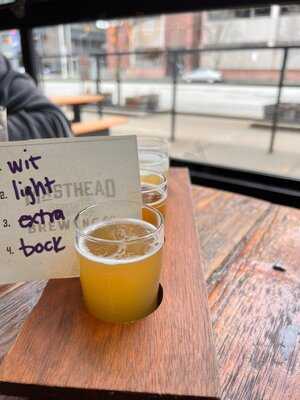 wit
2. light
3. extra
4. bock
STHEAD
BREWING